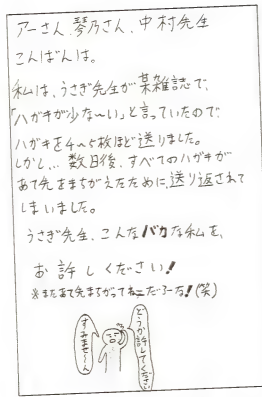 アーさん、琴乃さん、中村先生
こんばんは。
私は、うさぎ先生が某雑誌で、
「ハガキが少な〜い」と言っていたので、
ハガキを4〜5枚ほど送りました。
しかし… 数日後、すべてのハガキが
あて先をまちがえたために、送り返されて
しまいました。
うさぎ先生、こんなバカな私を、
お許しください!
※またあて先まちがってねーだろーな!(笑)
すみませ〜ん
どうか許してください